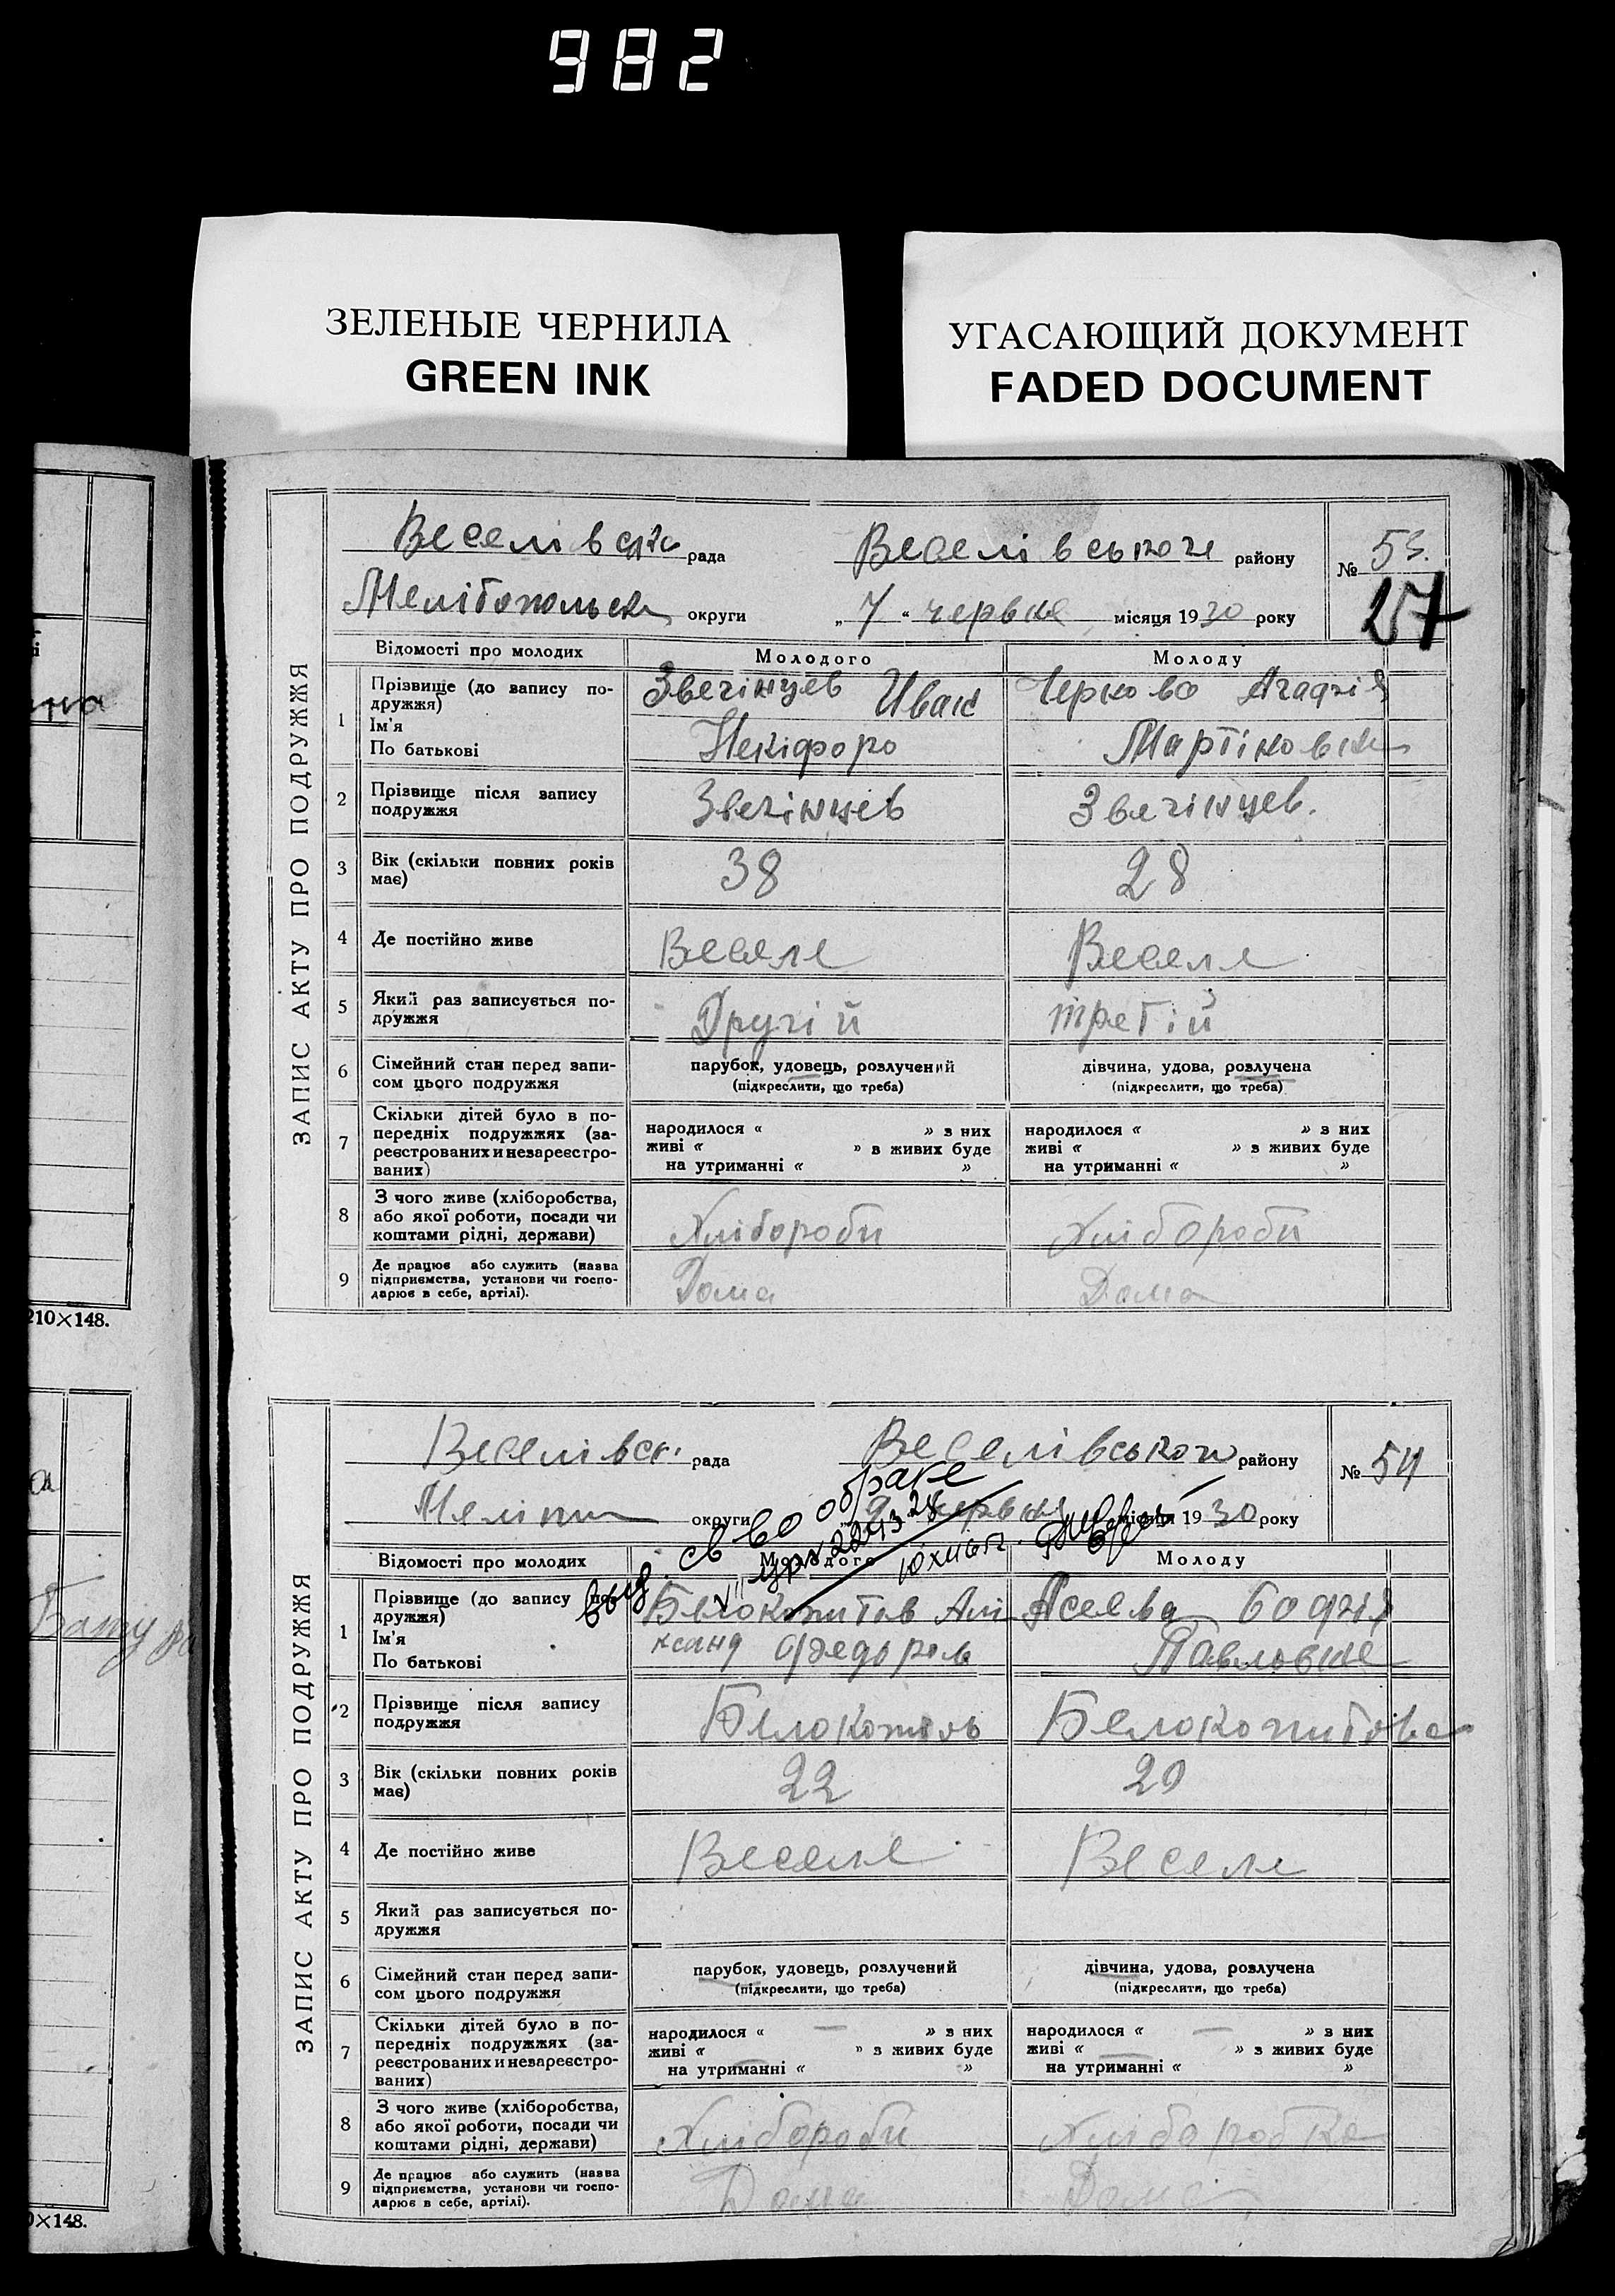 982
ЗЕЛЕНЫЕ ЧЕРНИЛА
GREEN INK
УГАСАЮЩИЙ ДОКУМЕНТ
FADED DOCUMENT
210×148.
×148.
ЗАПИС АКТУ ПРО ПОДРУЖЖЯ
Веселівська рада Веселівського району № 53.
Мелітопольська округи „7“ червня місяця 1930 року
257
Відомості про молодих Молодого Молоду
1 Прізвище (до запису по-
дружжя)
Ім'я
По батькові
Звегінцев Иван
Некіфоро
Черково Агафія
Мартіновна
2 Прізвище після запису
подружжя
Звегінцев Звегінцев.
3 Вік (скільки повних років
має)
38 28
4 Де постійно живе Веселе Веселе
5 Який раз записується по-
дружжя
Другій третій
6 Сімейний стан перед запи-
сом цього подружжя
парубок, удовець, розлучений
(підкреслити, що треба)
дівчина, удова, розлучена
(підкреслити, що треба)
7 Скільки дітей було в по-
передніх подружжях (за-
реєстрованих и незареєстро-
ваних)
народилося « » з них
живі « » з живих буде
на утриманні « »
народилося « » з них
живі « » з живих буде
на утриманні « »
8 З чого живе (хліборобства,
або якої роботи, посади чи
коштами рідні, держави)
Хлібороби Хлібороби
9 Де працює або служить (назва
підприємства, установи чи госпо-
дарює в себе, артілі).
Дома Дома
ЗАПИС АКТУ ПРО ПОДРУЖЖЯ
Веселівськ. рада Веселівського району № 54
округи червня місяця 1930 року
выд. св во о браке
Відомості про молодих Молодого Молоду
1 Прізвище (до запису по-
дружжя)
Ім'я
По батькові
Белокопитов Алі
ксанд Фредоров
Асеева
Павловне
2 Прізвище після запису
подружжя
Белокопитова
3 Вік (скільки повних років
має)
22 20
4 Де постійно живе Веселе Веселе
5 Який раз записується по-
дружжя
6 Сімейний стан перед запи-
сом цього подружжя
парубок, удовець, розлучений
(підкреслити, що треба)
дівчина, удова, розлучена
(підкреслити, що треба)
7 Скільки дітей було в по-
передніх подружжях (за-
реєстрованих и незареєстро-
ваних)
народилося « — » з них
живі « » з живих буде
на утриманні « »
народилося « — » з них
живі « » з живих буде
на утриманні « »
8 З чого живе (хліборобства,
або якої роботи, посади чи
коштами рідні, держави)
Хлібороби Хліборобка
9 Де працює або служить (назва
підприємства, установи чи госпо-
дарює в себе, артілі).
Дома Дома